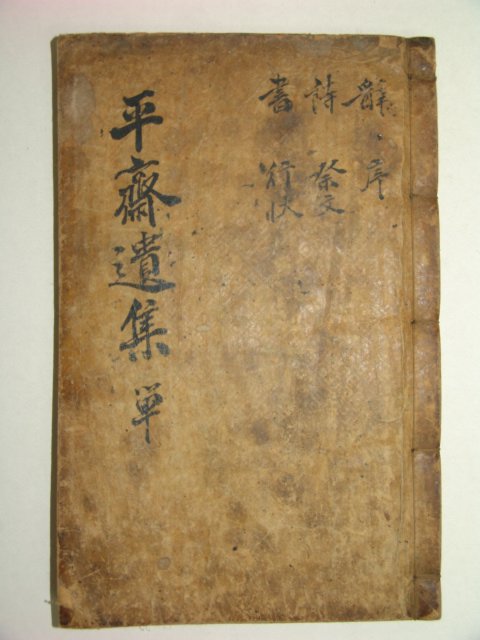 辭、序
詩 祭文
書 行狀
平齋遺集 單